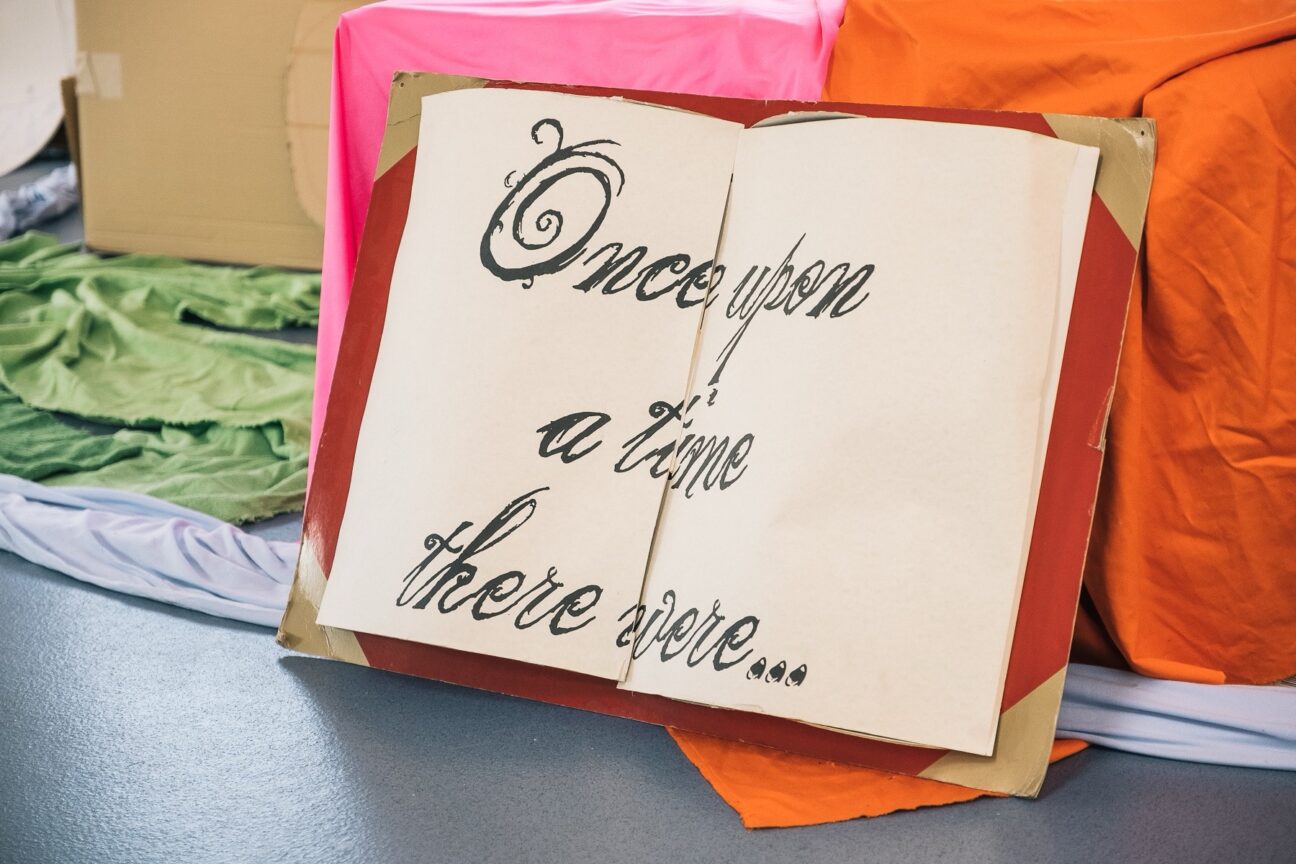 Once upon
a time
there were...